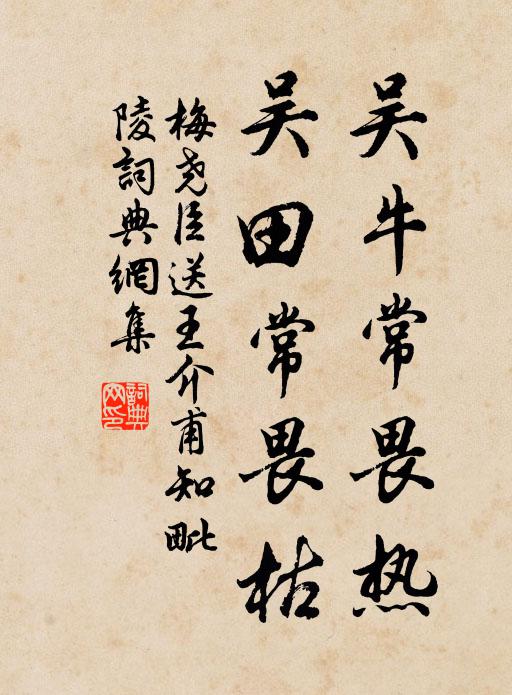 吴牛常畏热
吴田常畏枯
梅尧臣送王介甫知毗
陵詞典網集
詞典
网印